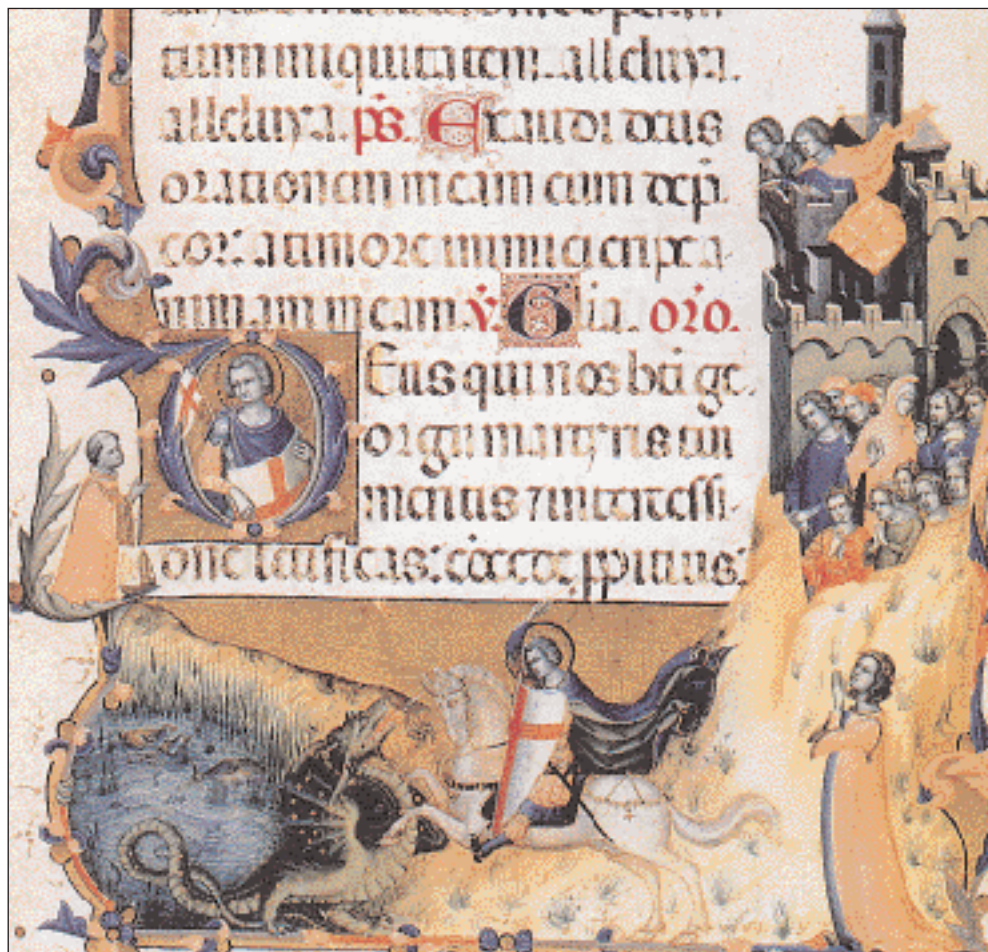 tium iniquitatem. alleluya.
alleluya. ps. Exaudi deus
orationem meam cum dep̄
cor: a timore inimici eripe a
nimam meam v̇. Glia. oro.
Deus qui nos bt̄i ge
orgii martyris tui
meritis ⁊ intercessi
one letificas: ꝓpitius: